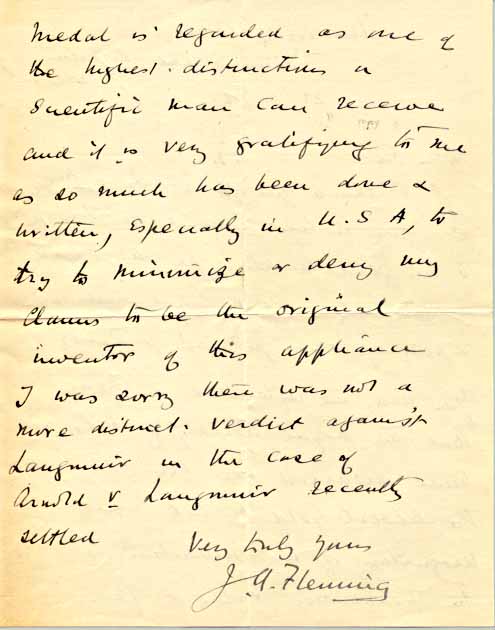 Medal is regarded as one of
the highest distinctions a
Scientific man can receive
and it is very gratifying to me
as so much has been done &
written, especially in U.S A, to
try to minimize or deny my
Claims to be the original
inventor of this appliance
I was sorry there was not a
more distinct verdict against
Langmuir in the case of
Arnold v Langmuir recently
settled
Very truly yours
J. A. Fleming